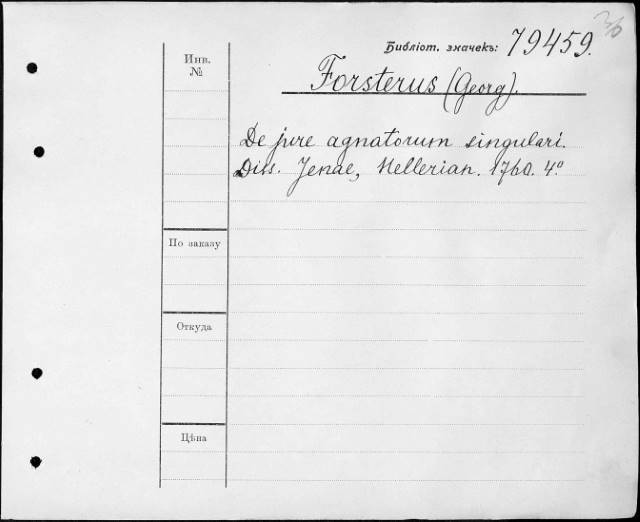 Библіот. значекъ: 79459.
Инв.
№
Forsterus (Georg).
De jure agnatorum singulari.
Diss. Jenae, Hellerian. 1760. 4º
По заказу
Откуда
Цѣна